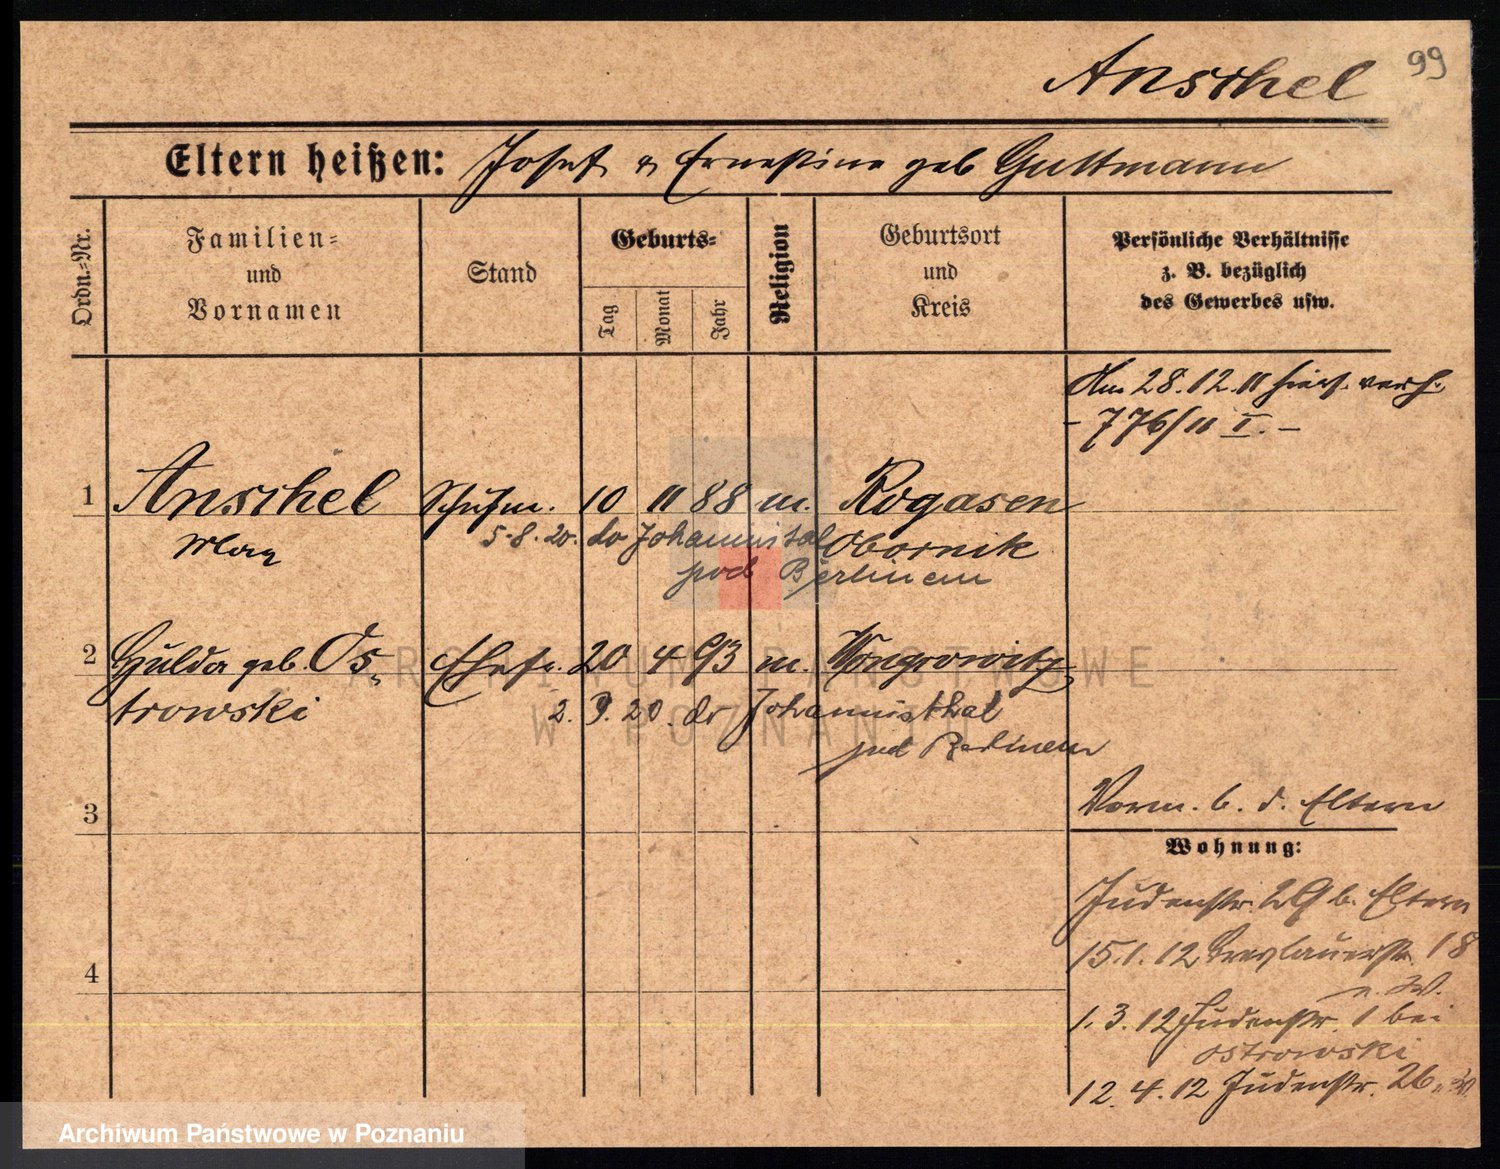 99
Anschel
Eltern heißen: Josef u Ernestine geb Guttmann
Ordn.-Nr.
Familien-
und
Vornamen
Stand
Geburts-
Tag
Monat
Jahr
Religion
Geburtsort
und
Kreis
Persönliche Verhältnisse
z. B. bezüglich
des Gewerbes usw.
Am 28.12.11 hies. verh.
- 776/11 I. -
1 Anschel 10 11 88 m. Rogasen
Max
Obornik
5.8.20. do Johannistal
pod Berlinem
2 Hulda geb. Os-
trowski
Ehefr. 20 4 93 m. Wongrowitz
2. 9. 20. do Johannisthal
pod Berlinem
3
Vorm. b. d. Eltern
Wohnung:
Judenstr. 29 b. Eltern
15.1.12 Breslauerstr. 18
u. W.
1.3.12 Judenstr. 1 bei
Ostrowski
4
12.4.12 Judenstr. 26 u. W.
ARCHIWUM PAŃSTWOWE
W POZNANIU
Archiwum Państwowe w Poznaniu